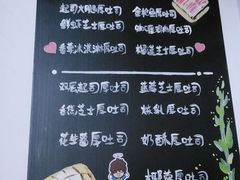 起司火腿厚吐司 金枪鱼厚吐司
鲜虾芝士厚吐司
香蕉冰淇淋厚吐司 榴莲芝士厚吐司
双层起司厚吐司 蓝莓芝士厚吐司
香烤芝士厚吐司 炼乳厚吐司
花生酱厚吐司 奶酥厚吐司
厚吐司